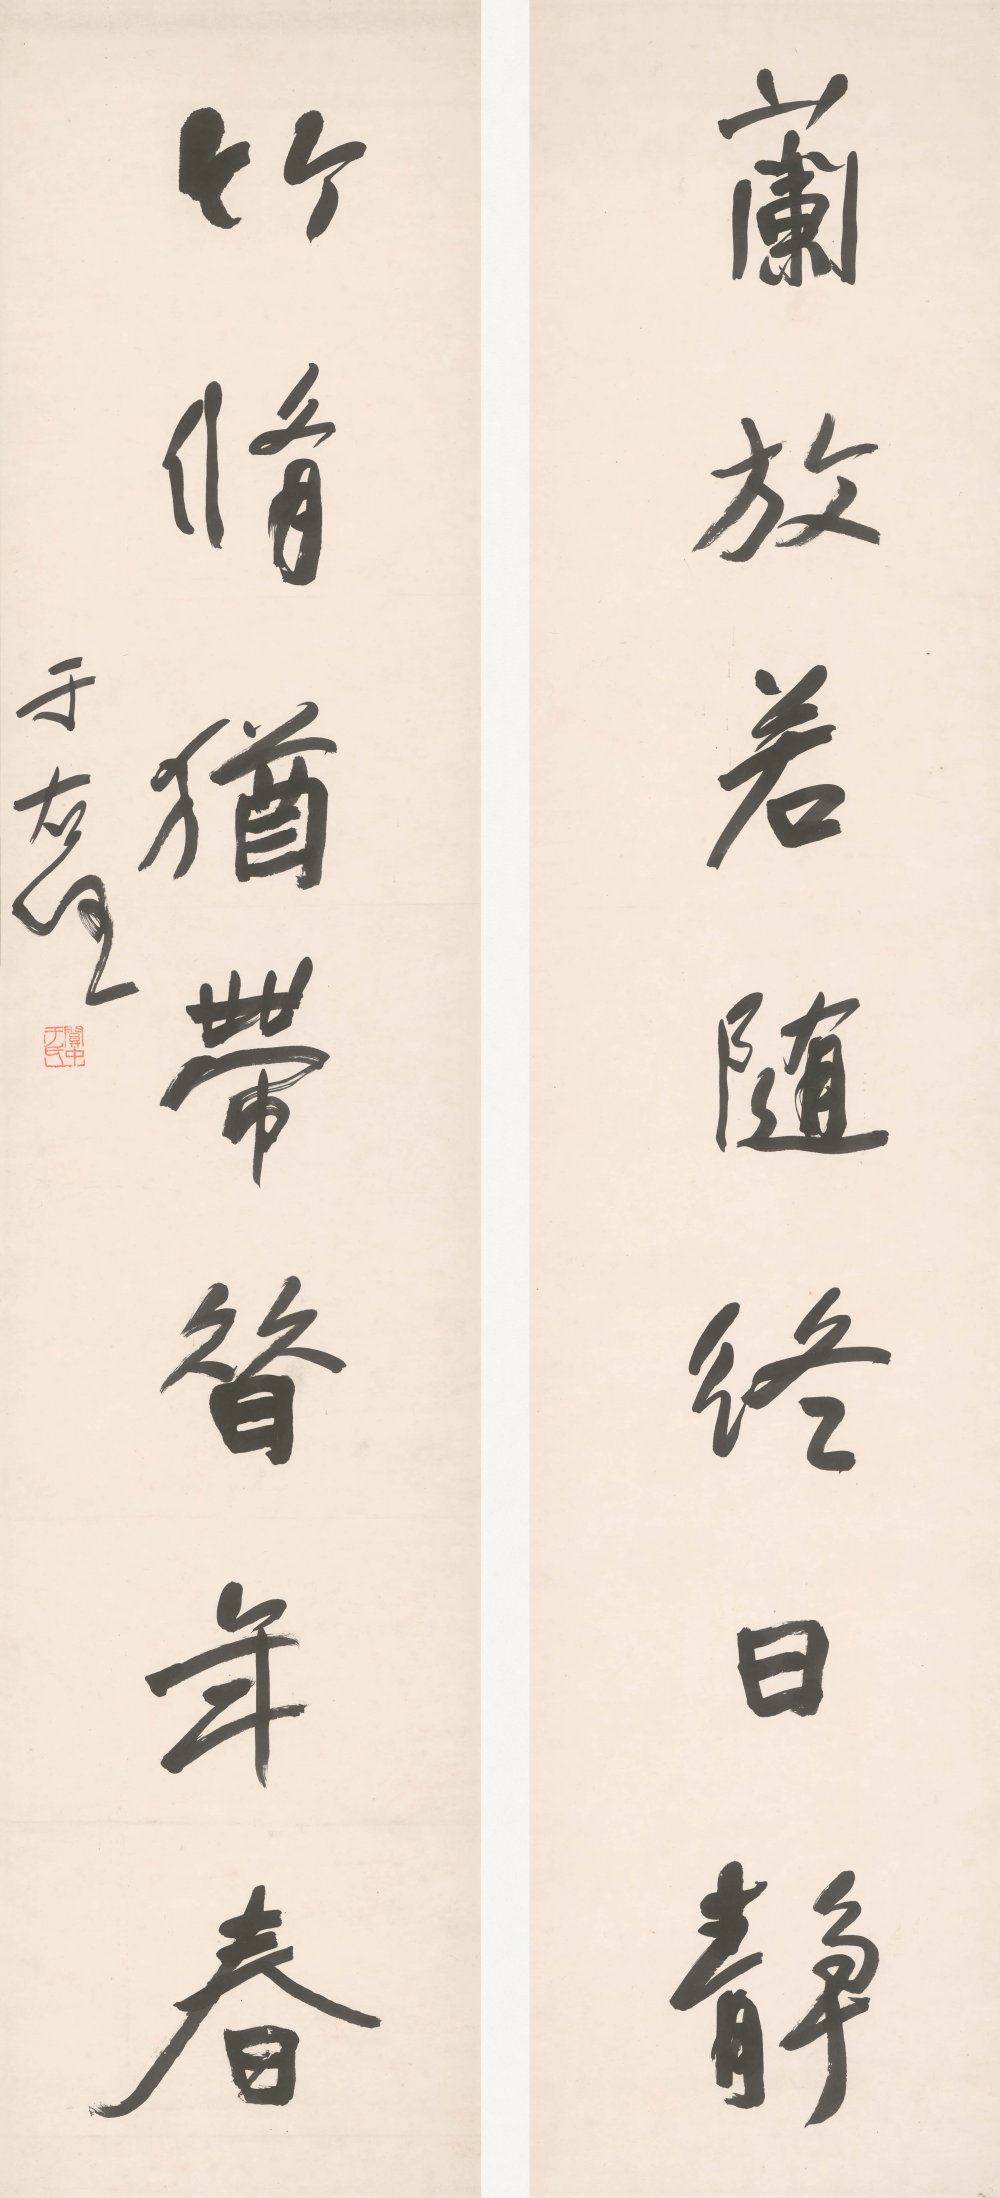 蘭放若随終日靜
竹脩猶帶昔年春
于右任
關中于氏